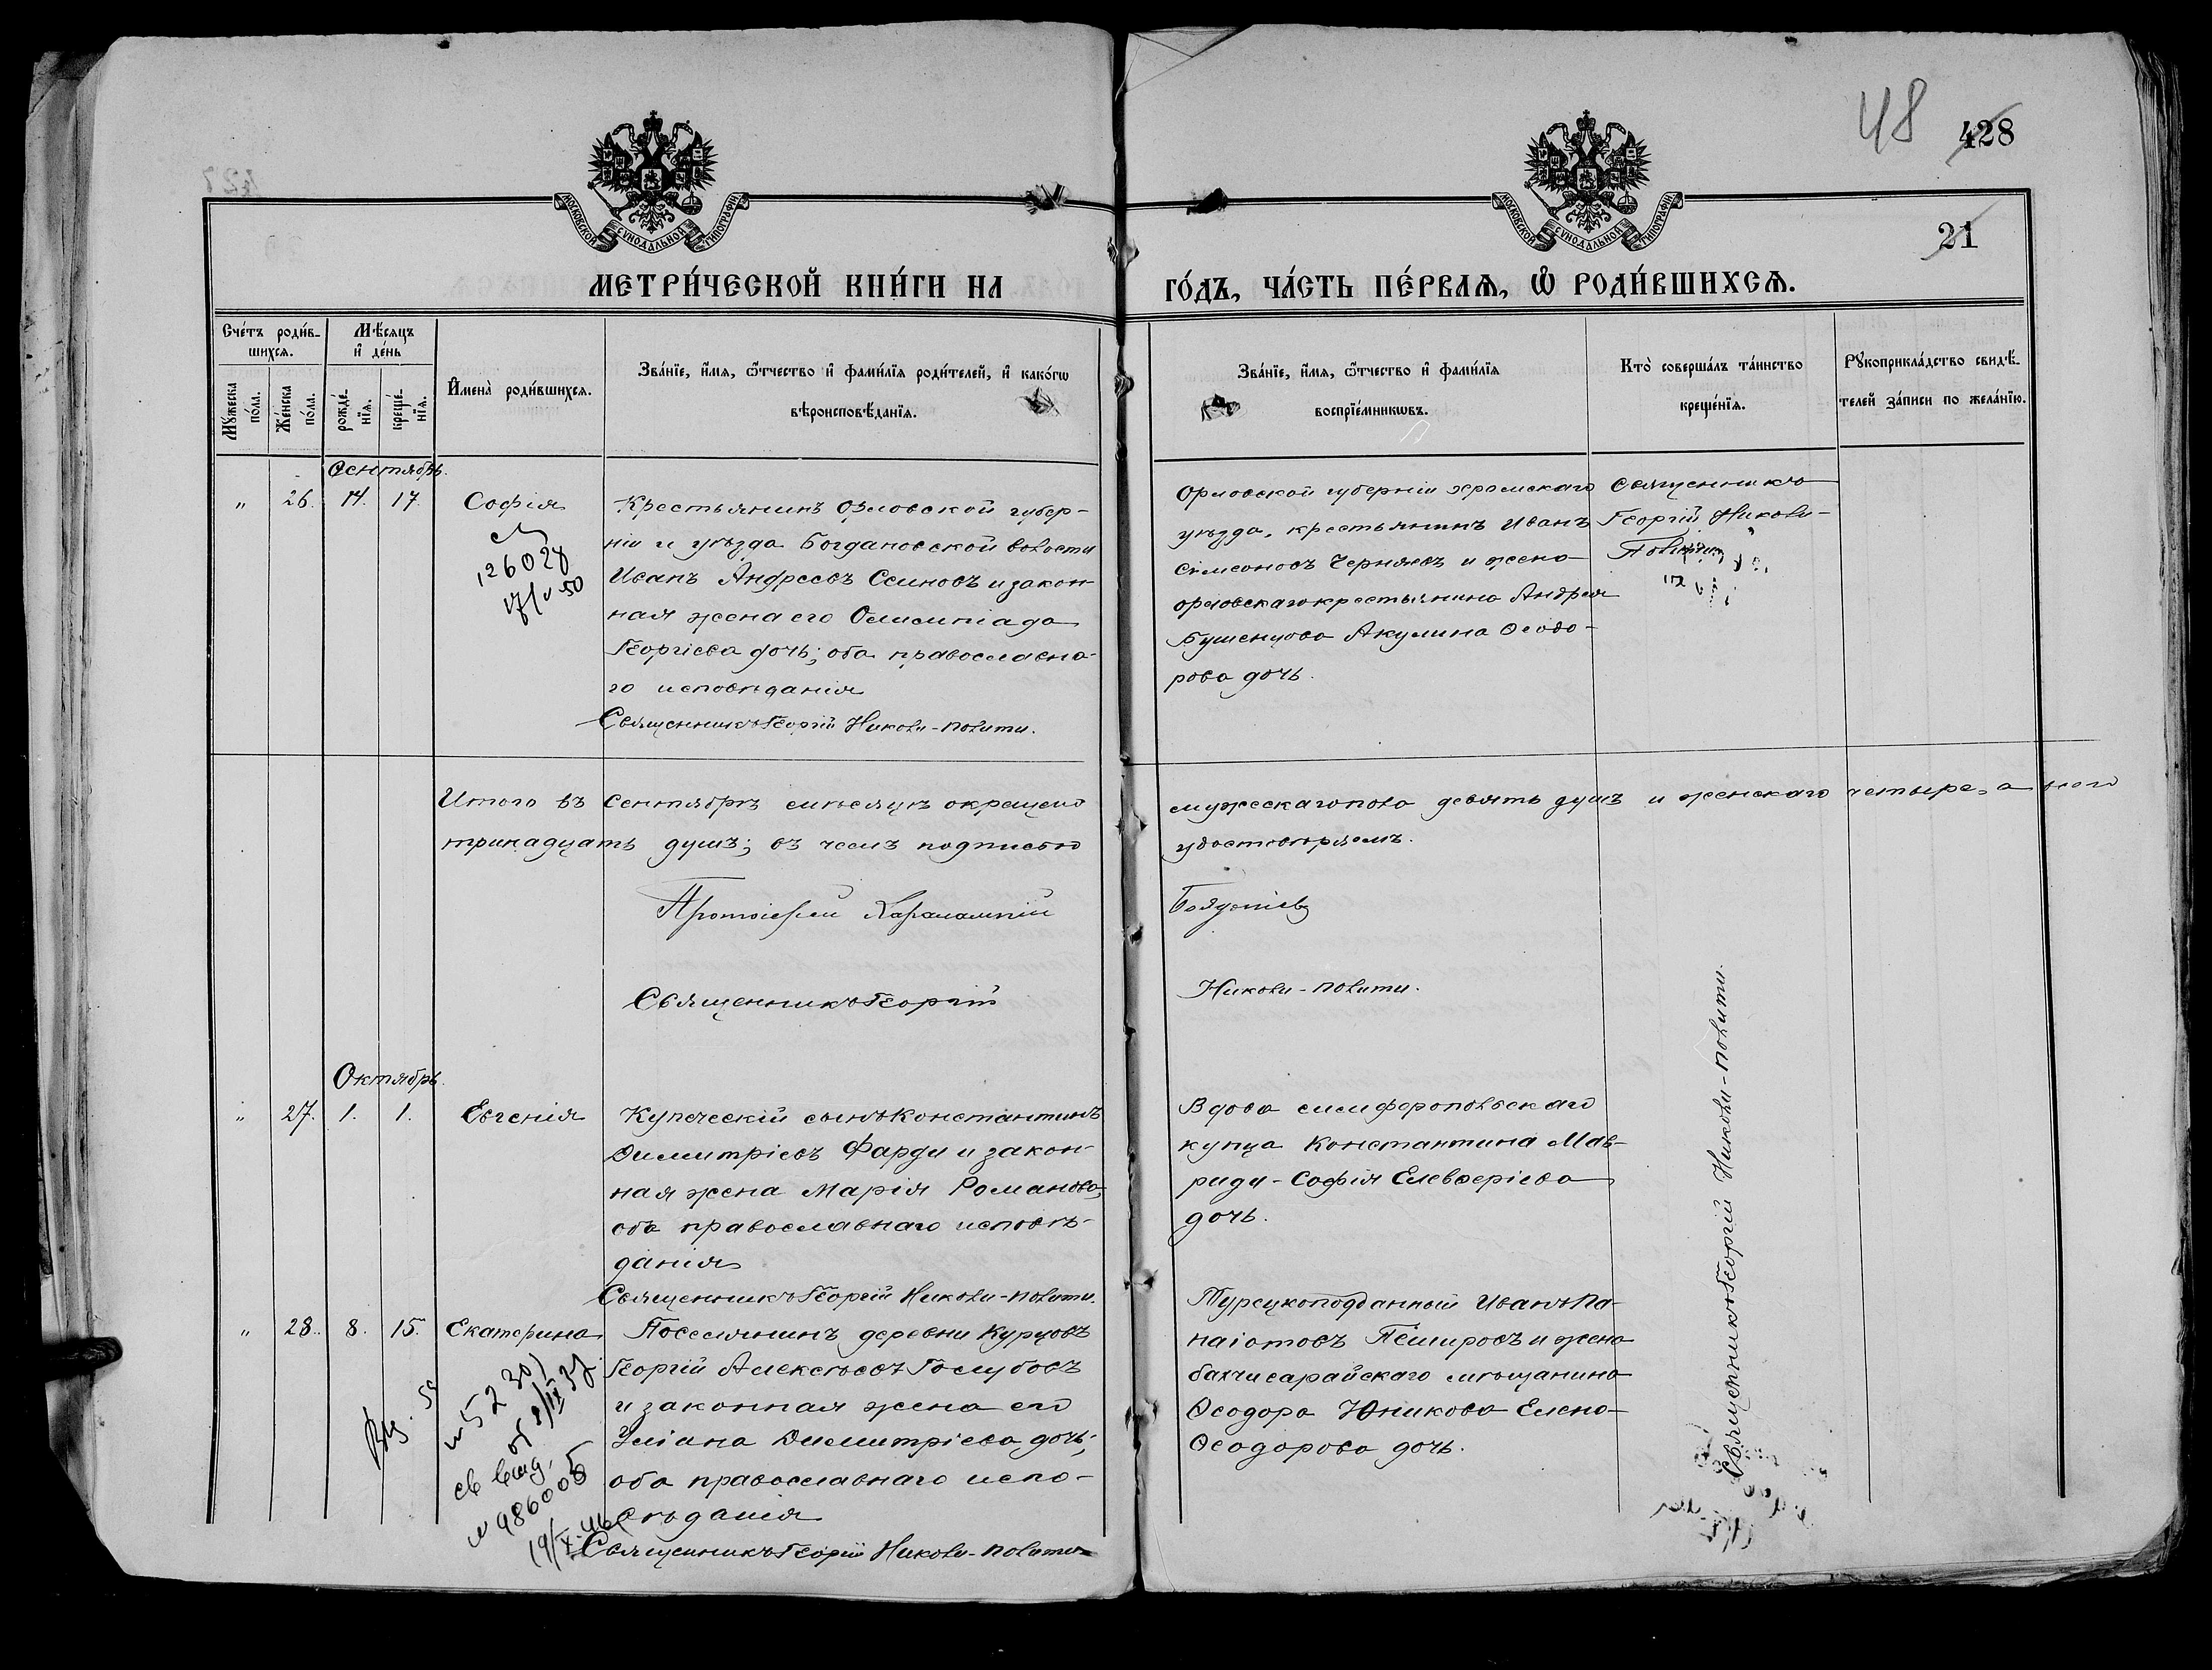 48 428
21
МОСКОВСКОЙ СѴНОДАЛЬНОЙ ТИПОГРАФІИ
МОСКОВСКОЙ СѴНОДАЛЬНОЙ ТИПОГРАФІИ
МЕТРИ́ЧЕСКОЙ КНИ́ГИ НА
ГО́ДЪ, ЧА́СТЬ ПЕ́РВАѦ, Ѿ РОДИ́ВШИХСѦ.
Сче́тъ роди́в-
шихся.
Мѣ́сяцъ
и҆ де́нь
Мꙋ́жеска
по́ла.
Же́нска
по́ла.
рожде́-
нїя.
креще́-
нїя.
И҆мена̀ роди́вшихся.
Зва́нїе, и҆́мя, ѻ҆́тчество и҆ фами́лїя роди́телей, и҆ како́гѡ
вѣроисповѣ́данїя.
Зва́нїе, и҆́мя, ѻ҆́тчество и҆ фами́лїя
воспрїе́мникѡвъ.
Кто̀ соверша́лъ та́инство
креще́нїя.
Рꙋкоприкла́дство свидѣ́-
телей за́писи по жела́нїю.
Сентябрь.
" 26. 14. 17. Софія
126028
17/V 50
Крестьянинъ Орловской губер-
ніи и уѣзда Богдановской волости
Иванъ Андреевъ Сеиновъ и закон-
ная жена его Олимпіада
Георгіева дочь; оба православна-
го исповѣданія
Священникъ Георгій Николи-Полити.
Орловской губерніи хромскаго
уѣзда, крестьянинъ Иванъ
Симеоновъ Черняевъ и жена
орловскаго крестьянина Андрея
Бушенцова Акулина Ѳеодо-
рова дочь.
Священникъ
Георгій Николи-
Полити
Итого въ Сентябрѣ мѣсяцѣ окрещено мужескаго пола девять душъ и женскаго четыре, а всего
тринадцать душъ; въ чемъ подписью удостовѣряемъ.
Протоіерей Харалампій
Священникъ Георгій Николи-Полити.
Октябрь.
" 27. 1. 1. Евгенія
Купеческій сынъ Константинъ
Димитріевъ Фарди и закон-
ная жена Марія Романова,
оба православнаго исповѣ-
данія
Священникъ Георгій Николи-Полити.
Вдова симферопольскаго
купца Константина Мав-
риди - Софія Елевѳеріева
дочь.
" 28. 8. 15. Екатерина
Поселянинъ деревни Курцовъ
Георгій Алексѣевъ Голубовъ
и законная жена его
Уліана Димитріева дочь;
оба православнаго испо-
вѣданія
Священникъ Георгій Николи-Полити
Турецкоподданный Иванъ Па-
наіотовъ и жена
бахчисарайскаго мѣщанина
Ѳеодора Юникова Елена
Ѳеодорова дочь.
Священникъ Георгій Николи-Полити.